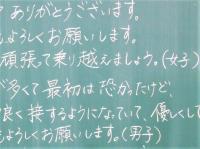 ありがとうございます。
よろしくお願いします。
頑張って乗り越えましょう。(女子)
が多くて最初は恐かったけど、
良く接するようになっていて、優しくして
よろしくお願いします。(男子)